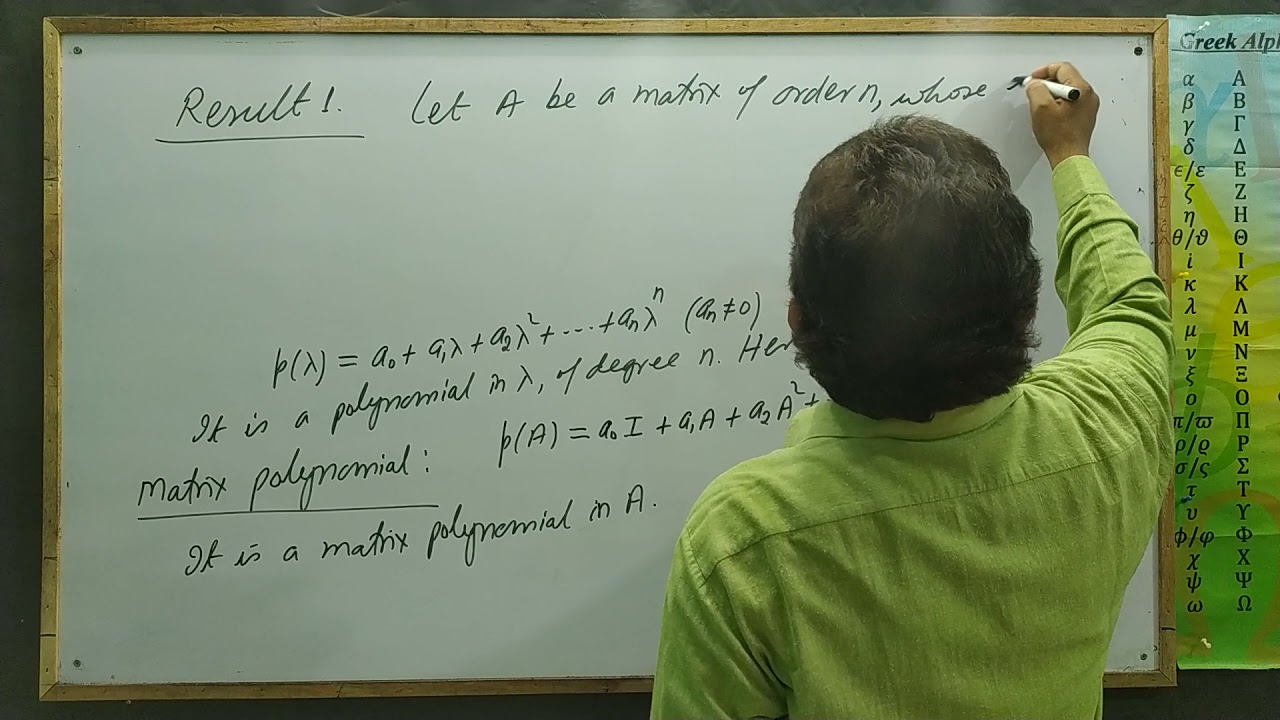 Result 1. Let A be a matrix of order n, whose
p(λ) = a₀ + a₁λ + a₂λ² + ... + aₙλⁿ (aₙ ≠ 0)
It is a polynomial in λ, of degree n.
Matrix polynomial: p(A) = a₀I + a₁A + a₂A² +
It is a matrix polynomial in A.
Greek Alp
α Α
β Β
γ Γ
δ Δ
ϵ/ε Ε
ζ Ζ
η Η
θ/ϑ Θ
i Ι
κ Κ
λ Λ
μ Μ
ν Ν
ξ Ξ
ο Ο
π/ϖ Π
ρ/ϱ Ρ
σ/ς Σ
τ Τ
υ Υ
ϕ/φ Φ
χ Χ
ψ Ψ
ω Ω